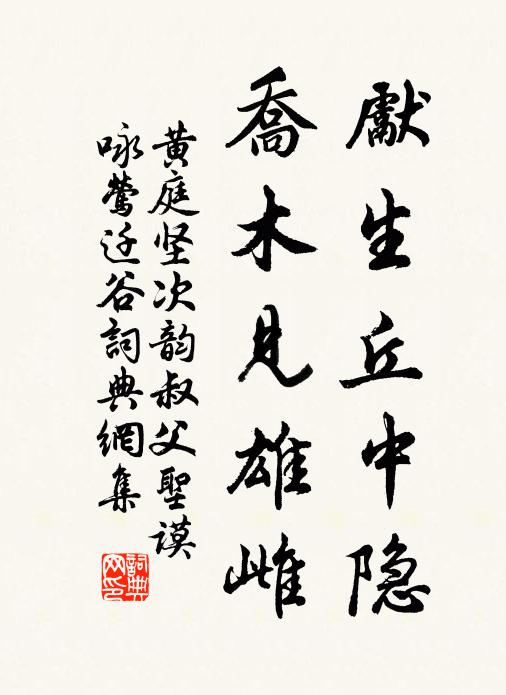 獻生丘中隐
喬木見雄雌
黄庭坚次韵叔父聖謨
咏鶯迁谷詞典網集
詞典网印